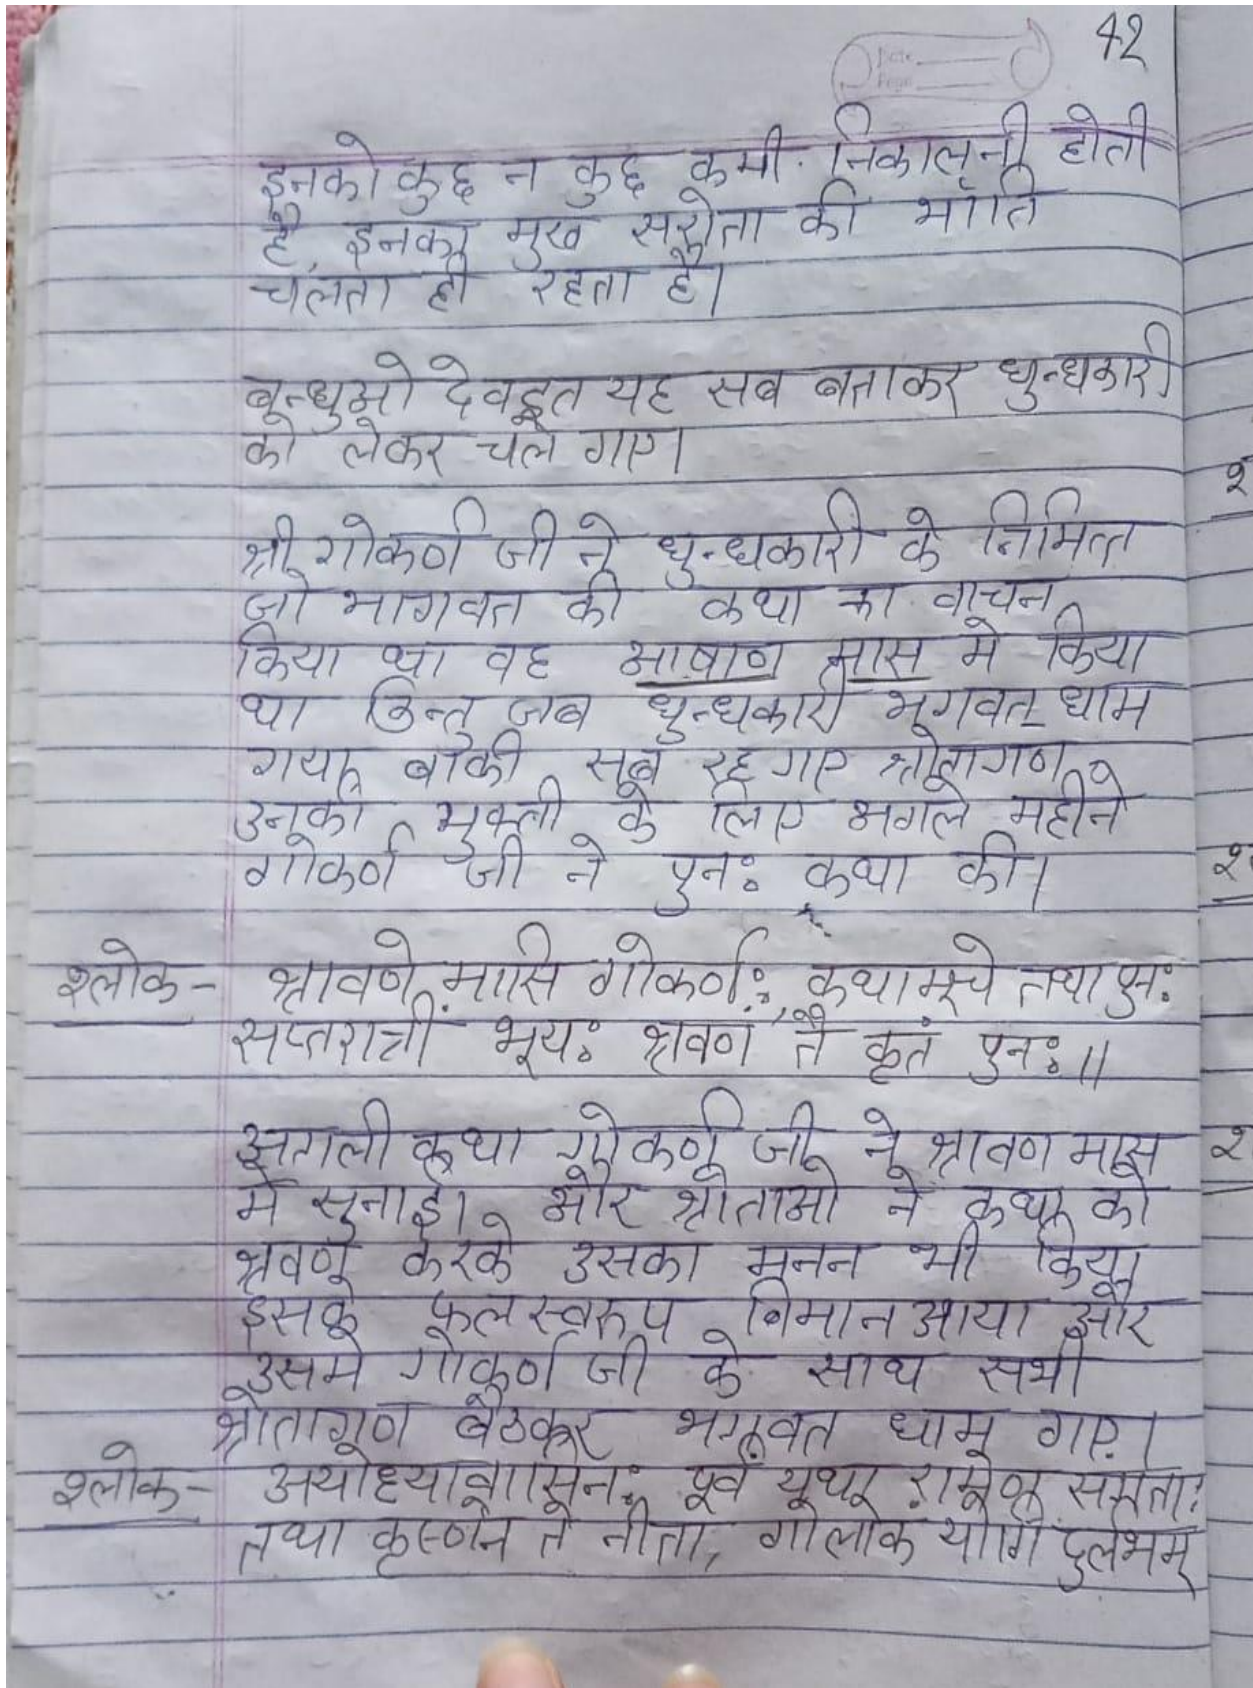 42
Date
Page
इनको कुछ न कुछ कमी निकालनी होती
है, इनका मुख सरोता की भाँति
चलता ही रहता है।
बन्धुओ देवदूत यह सब बताकर धुन्धकारी
को लेकर चले गए।
श्री गोकर्ण जी ने धुन्धकारी के निमित्त
जो भागवत की कथा का वाचन
किया था वह आषाण मास मे किया
था किन्तु जब धुन्धकारी भगवत् धाम
गया, बाकी सब रह गए श्रोतागण
उनकी मुक्ती के लिए अगले महीने
गोकर्ण जी ने पुनः कथा की।
श्लोक- श्रावणे मासि गोकर्णः, कथामूचे तथा पुनः
सप्तरात्री भूयः श्रवणं तै कृतं पुनः॥
अगली कथा गोकर्ण जी ने श्रावण मास
मे सुनाई। और श्रोताओ ने कथा को
श्रवण करके उसका मनन भी किया
इसके फलस्वरूप विमान आया और
उसमे गोकर्ण जी के साथ सभी
श्रोतागण बैठकर भगवत धाम गए।
श्लोक- अयोध्यावासिनः पूर्वं यथा रामेण संगताः
तथा कृष्णेन ते नीता, गोलोकं योगि दुर्लभम्